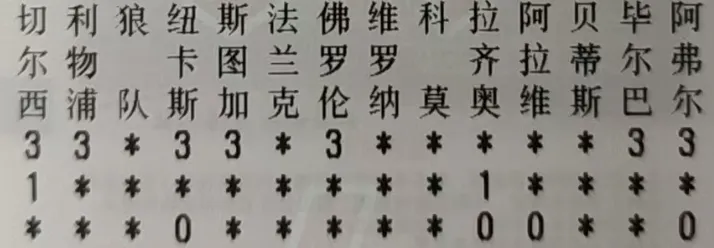 切尔西
利物浦
狼队
纽卡斯
斯图加
法兰克
佛罗伦
维罗纳
科莫
拉齐奥
阿拉维
贝蒂斯
毕尔巴
阿弗尔
3 3 * 3 3 * 3 * * * * * 3 3
1 * * * * * * * * 1 * * * *
* * * 0 * * * * * 0 0 * * 0